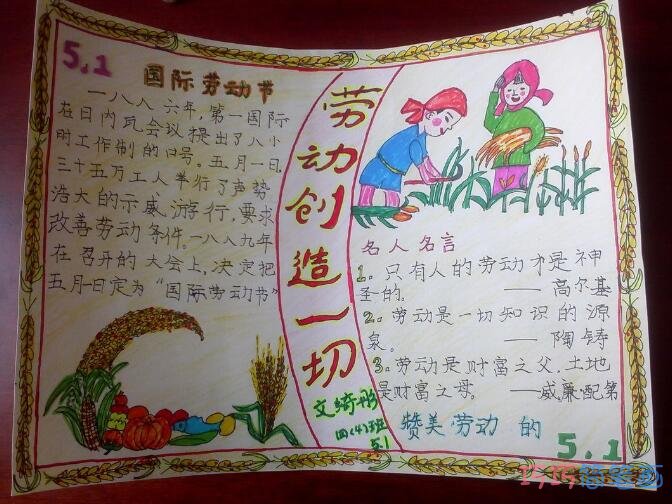 5.1
国际劳动节
一八八六年,第一国际
在日内瓦会议提出了八小
时工作制的口号。五月一日
三十五万工人举行了声势
浩大的示威游行,要求
改善劳动条件。一八八九年
在召开的大会上,决定把
五月一日定为“国际劳动节”
劳动创造一切
名人名言
1。只有人的劳动才是神
圣的。 ——高尔基
2。劳动是一切知识的源
泉。 ——陶铸
3。劳动是财富之父,土地
是财富之母。 ——威廉·配第
文绮彤
四(4)班
5.1
赞美劳动的
5.1